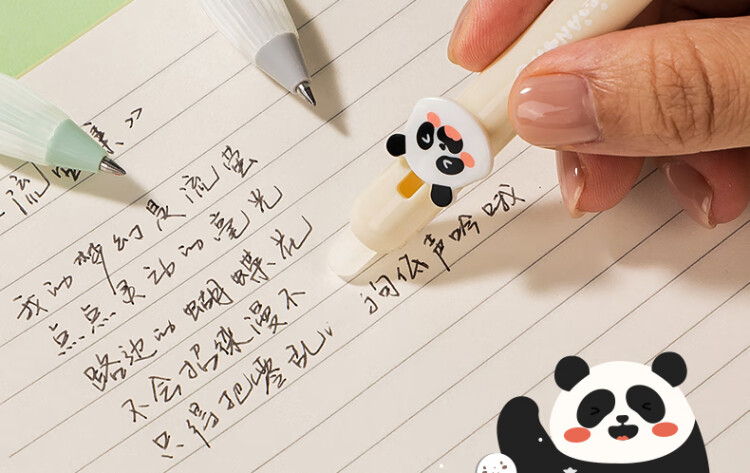 流 集》
我的梦幻是流萤
点点灵动的毫光
路边的蝴蝶花
不会招徕漫不
只得把零乱 低声吟哦